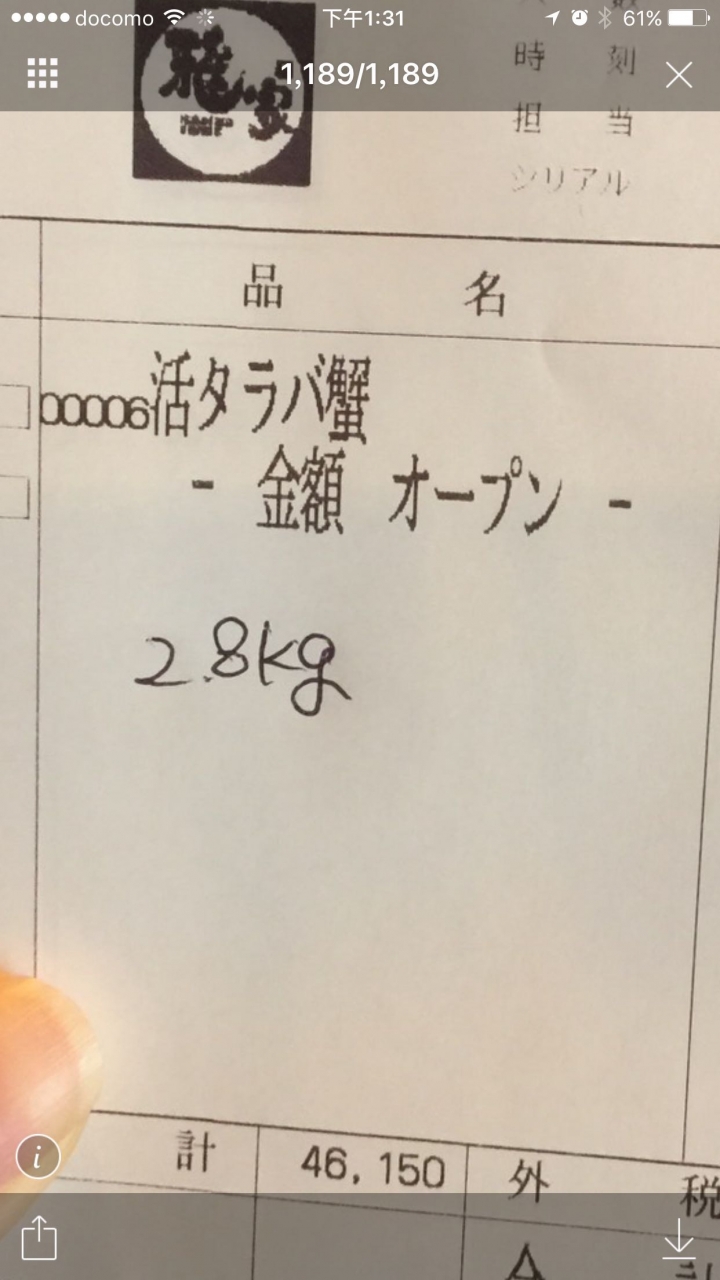 docomo 下午1:31 61%
1,189/1,189
雅家
時刻
担当
シリアル
品名
00006活タラバ蟹
- 金額 オープン -
2.8kg
計 46,150 外税